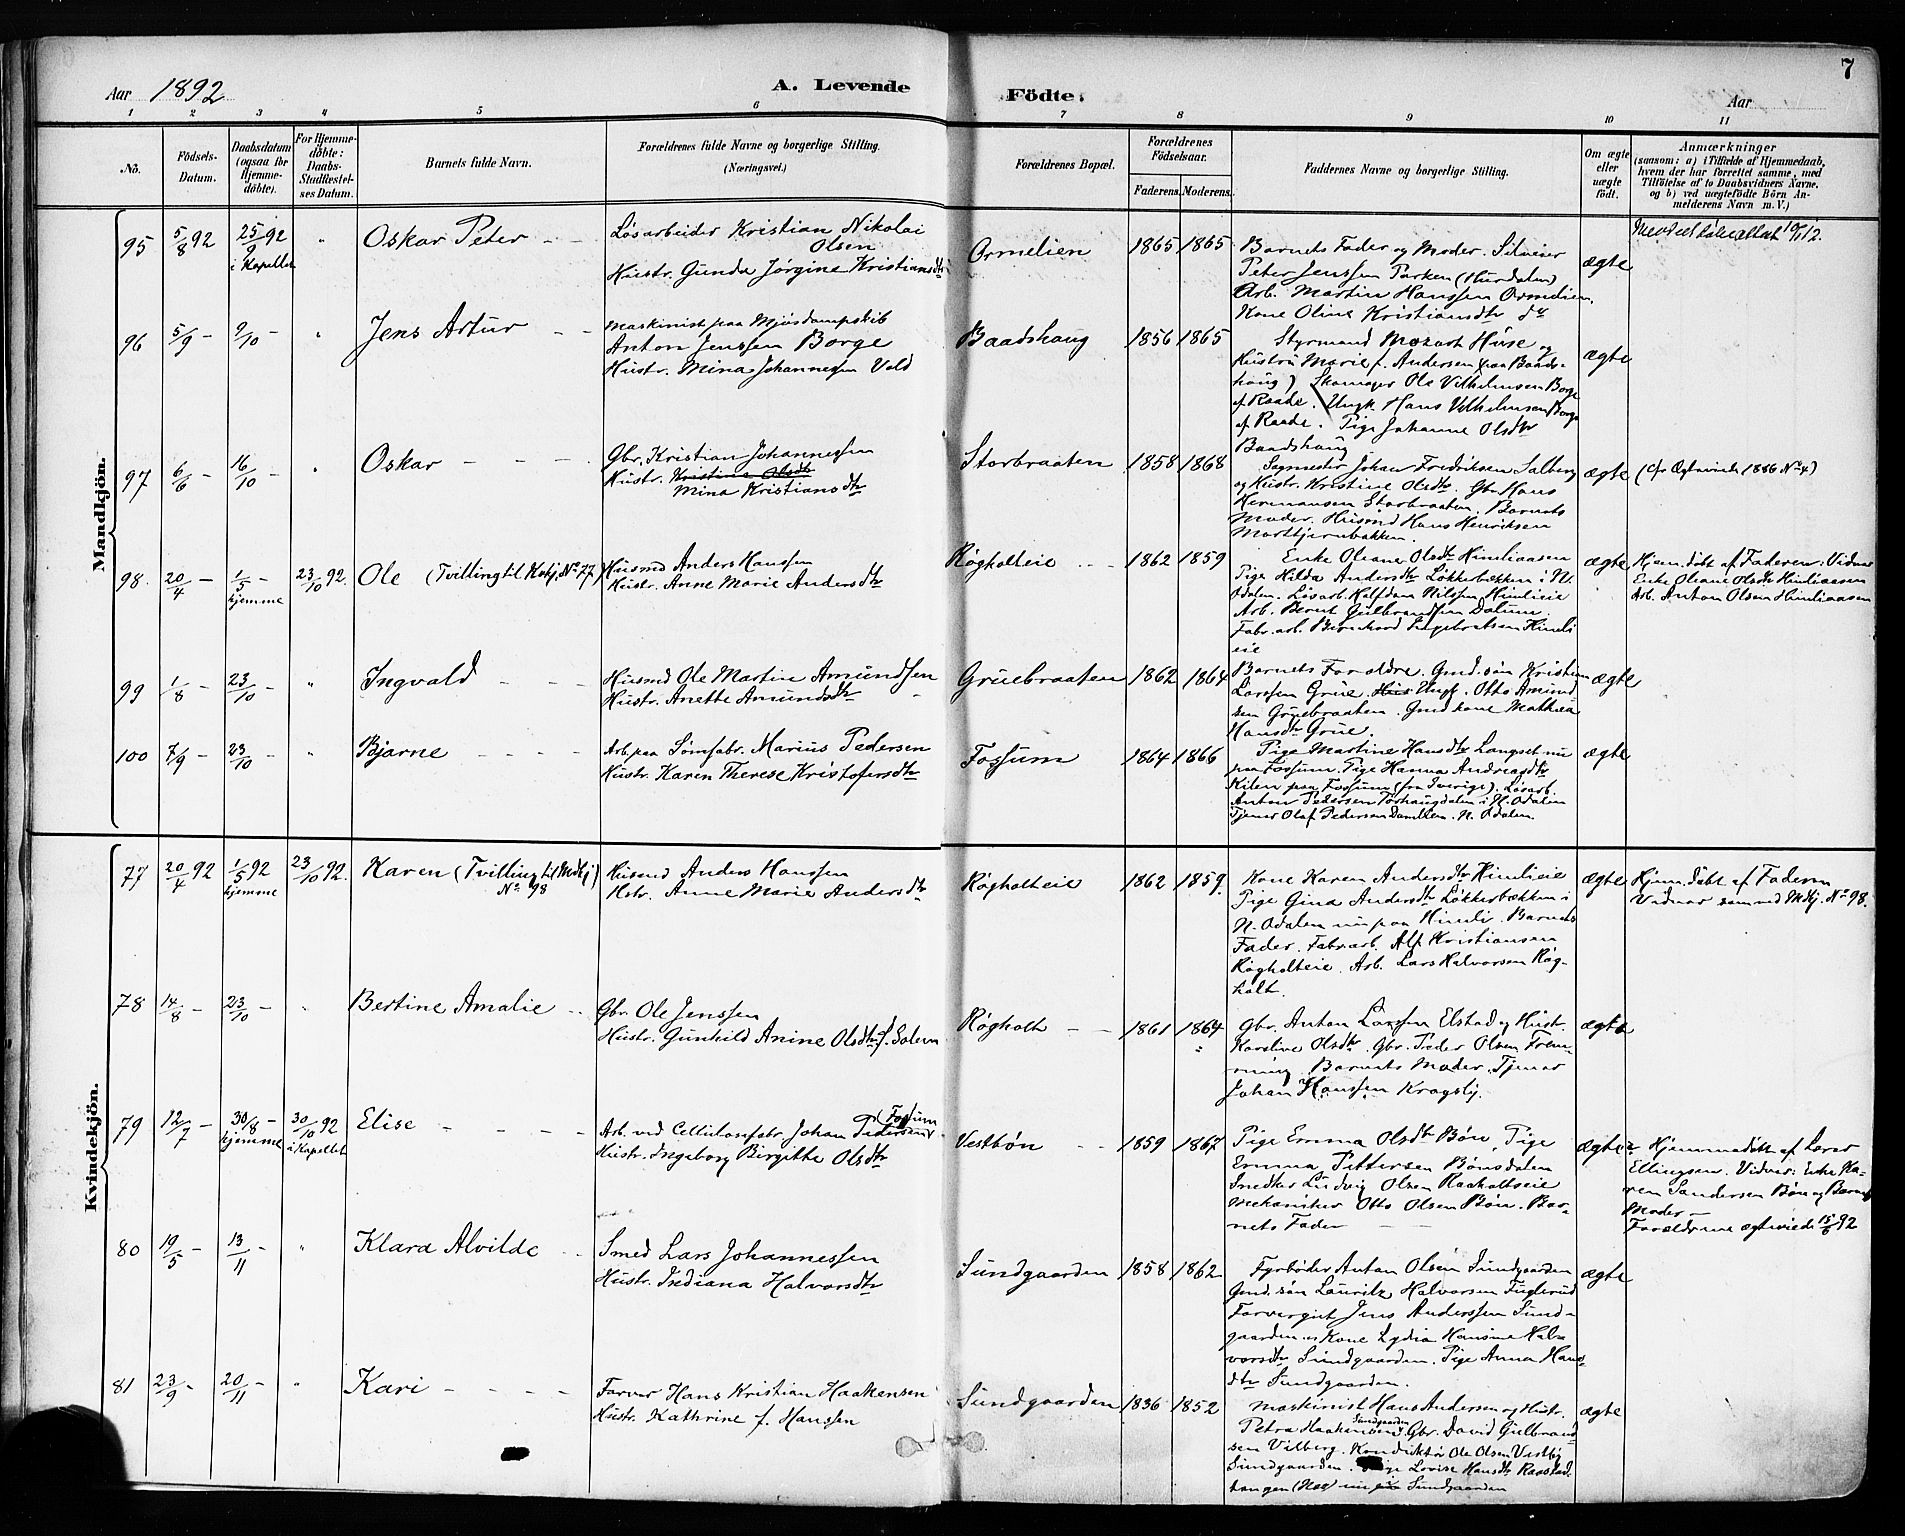 7
Aar 1892
A. Levende
Födte.
Aar
1 2 3 4 5 6 7 8 9 10 11
No.
Födsels-Datum.
Daabsdatum (ogsaa for Hjemmedöbte).
For Hjemmedöbte: Daabs-Stadfæstelses Datum.
Barnets fulde Navn.
Forældrenes fulde Navne og borgerlige Stilling. (Næringsvei.)
Forældrenes Bopæl.
Forældrenes Födselsaar.
Faderens. Moderens.
Faddernes Navne og borgerlige Stilling.
Om ægte eller uægte födt.
Anmærkninger
(saasom: a) i Tilfælde af Hjemmedaab, hvem der har forrettet samme, med Tilföielse af to Daabsvidners Navne, og b) ved uægtefödte Börn Anmelderens Navn m. V.)
Mandkjön.
95 5/8 92 25/9 92 i Kapellet " Oskar Peter
Løsarbeider Kristian Nikolai
Olsen
Hustr. Gunda Jørgine Kristiansdtr
Ormelien 1865 1865
Barnets Fader og Moder.
Peter Jenssen Parken (Hurdalen)
Arb. Martin Hanssen Ormelien.
Kone Oline Kristiansdtr
ægte
96 5/9 9/10 " Jens Artur
Maskinist paa Mjøsdampskib
Anton Jenssen Borge
Hustr. Mina Johannesen Vold
Baadshaug 1856 1865
Styrmand Mozart Huse og
Hustru Marie f. Andersen (paa Baads-
haug) Skomager Ole Vilhelmsen Borge
af Raade. Ungk. Hans Vilhelmsen Borge
af Raade. Pige Johanne Olsdtr
Baadshaug
ægte
97 6/6 16/10 " Oskar
Gbr. Kristian Johannessen
Hustr. Kristine Olsdtr
Mina Kristiansdtr
Storbraaten 1858 1868
Sagmester Johan Fredriksen Salberg
og Hustr. Kristine Olsdtr. Gbr. Hans
Hermansen Storbraaten. Barnets
Moder. Husmd Hans Henriksen
ægte (cfr Ægteviede 1886 No 4)
98. 20/4 1/5 hjemme 23/10 92. Ole (Tvilling til Kvkj. No 77)
Husmd Anders Hanssen
Hustr. Anne Marie Andersdtr
Røgholteie 1862 1859
Enke Oliane Olsdtr Himliaasen
Pige Hilda Andersdtr Løkkebækken i N.
Odalen. Løsarb. Halfdan Nilssen Himlieie
Arb. Bernt Gulbrandsen Dalum.
Fabr.arb. Bernhard Ingebretsen Himli
eie
ægte
Hjem.døbt af Faderen. Vidner
Enke Oliane Olsdtr Himliaasen
Arb. Anton Olsen Himliaasen
99 1/8 23/10 " Ingvald
Husmd Ole Martin Amundsen
Hustr. Anette Amundsdtr
Gruebraaten 1862 1864
Barnets Forældre. Gmd.søn Kristian
Larssen Grue. Hus Ungk. Otto Amund-
sen Gruebraaten. Gmd kone Mathea
Hansdtr Grue.
ægte
100 7/9 23/10 " Bjarne
Arb. paa Sømfabr. Marius Pedersen
Hustr. Karen Therese Kristofersdtr
Fossum 1864 1866
Pige Martine Hansdtr Langset nu
paa Fossum. Pige Hanna Andreasdtr
Kilen paa Fossum (fra Sverige). Løsarb.
Anton Pedersen Torhaugdalen i N. Odalen
Tjener Olaf Pedersen N. Odalen.
ægte
Kvindekjön.
77 20/4 92 1/5 92 hjemme 23/10 92. Karen (Tvilling til Mdkj
No 98)
Husmd Anders Hanssen
Hstr. Anne Marie Andersdtr
Røgholteie 1862 1859.
Kone Karen Andersdtr Himlieie
Pige Gina Andersdtr Løkkebækken i
N. Odalen nu paa Himli. Barnets
Fader. Fabr.arb. Alf Kristiansen
Røgholteie. Arb. Lars Halvorsen Røg-
holt.
ægte
Hjem.døbt af Faderen
Vidner som ved Mdkj. No 98.
78 14/8 23/10 " Bertine Amalie
Gbr. Ole Jenssen
Hustr. Gunhild Anine Olsdtr f. Solem
Røgholt 1861 1864
Gbr. Anton Larssen Elstad og Hustr.
Karoline Olsdtr. Gbr. Peder Olsen Frem-
ming. Barnets Moder. Tjener
Johan Hanssen Kragsby.
ægte
79 12/7 30/8 hjemme 30/10 92 i Kapellet Elise
Arb. ved Cellulosefabr. Johan Pedersen (Fossum
Hustr. Ingeborg Birgitte Olsdtr
Vestbøn 1859 1867
Pige Emma Olsdtr Bøn, Pige
Emma Pettersen Bønsdalen
Snedker Ludvig Olsen Raaholtseie
Mekaniker Otto Olsen Bøn. Bar-
nets Fader
ægte
Hjemmedøbt af Lærer
Ellingsen. Vidner: Enke Ka-
ren Sandersen Bøn og Barnets
Moder
Forældrene ægteviede 92
80 19/5 13/11 " Klara Alvilde
Smed Lars Johannessen
Hustr. Indiana Halvorsdtr
Sundgaarden 1858 1862
Fyrbøder Anton Olsen Sundgaarden
Gmd.søn Lauritz Halvorsen Fuglerud
Farvergut Jens Anderssen Sund-
gaarden. Kone Lydia Hansine Hal-
vorsdtr Sundgaarden. Pige Anna Hans-
dtr Sundgaarden.
ægte
81 23/9 20/11 " Kari
Farver Hans Kristian Haakensen
Hustr. Kathrine f. Hanssen
Sundgaarden 1836 1852
Maskinist Hans Andersen og Hustr.
Petra Haakensen Sundgaarden Gbr. David Gulbrand-
sen Vilberg. Konduktør Ole Olsen Vestby
Sundgaarden. Pige Lovise Hansdtr Raastad
hangen (Nes) nu Sundgaarden
ægte